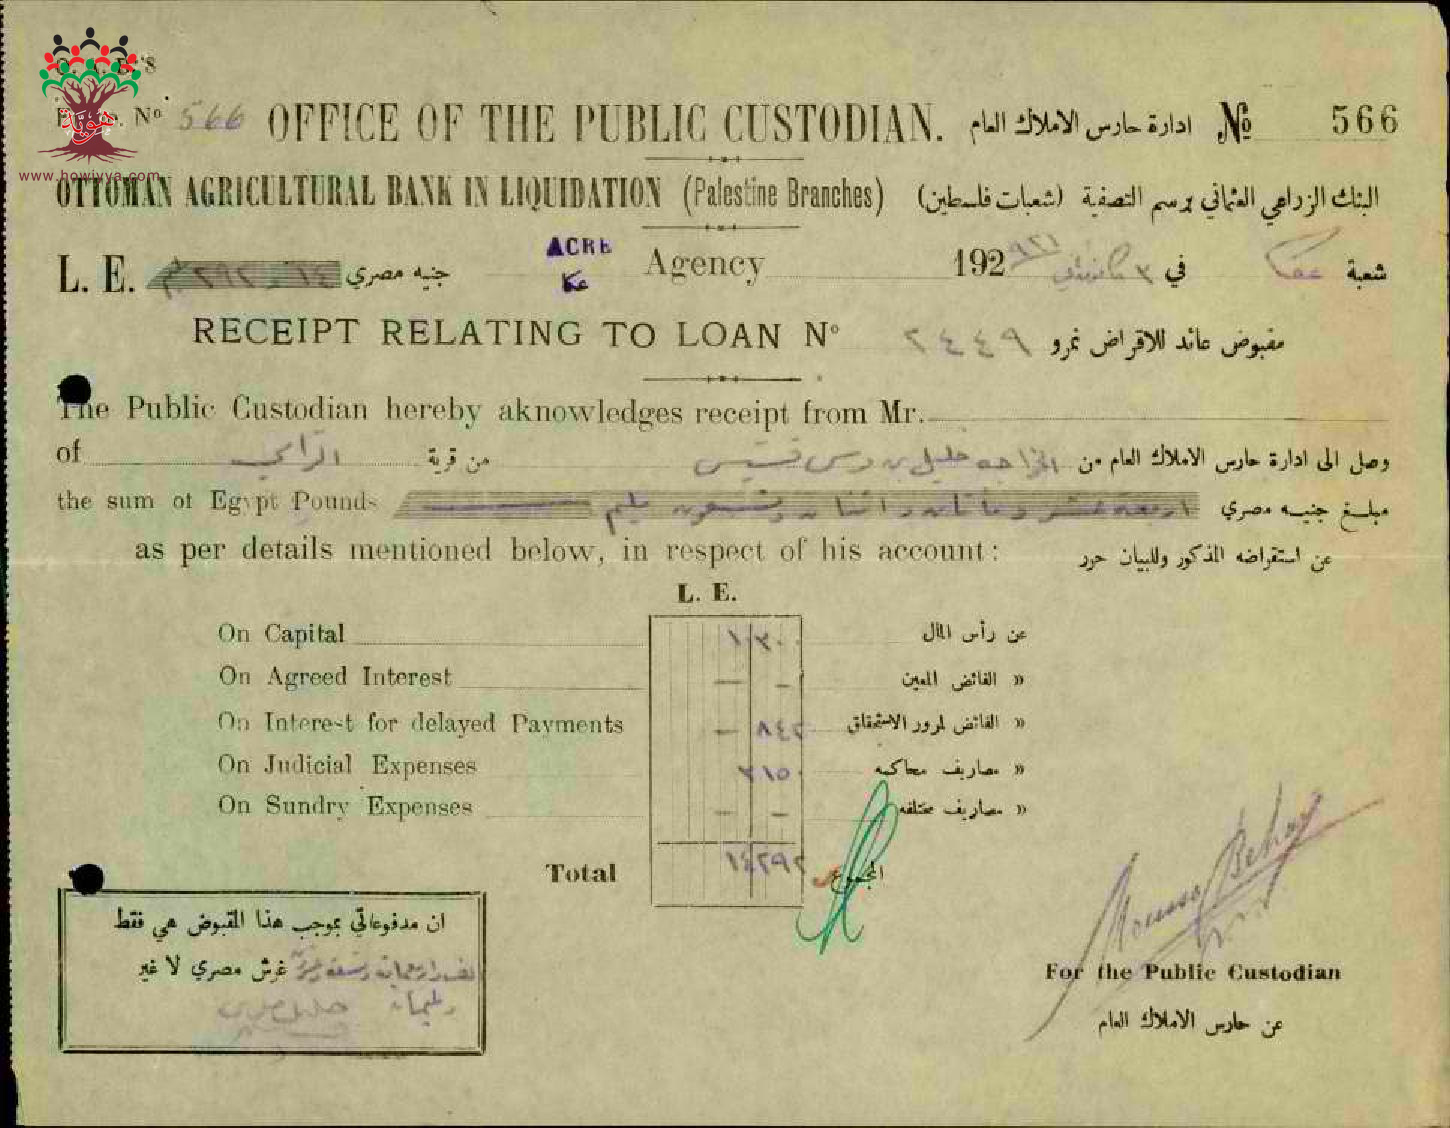 O. A. B.'S
Nº 566 OFFICE OF THE PUBLIC CUSTODIAN. ادارة حارس الاملاك العام Nº 566
www.howiyya.com
هوية
OTTOMAN AGRICULTURAL BANK IN LIQUIDATION (Palestine Branches) البنك الزراعي العثماني برسم التصفية (شعبات فلسطين)
ACRE
L. E. ١٤ ٢٩٢ جنيه مصري عكا Agency 192 في ٣ شعبة عكا
RECEIPT RELATING TO LOAN Nº ٢٤٤٩ مقبوض عائد للاقراض نمرو
The Public Custodian hereby aknowledges receipt from Mr.
of من قرية وصل الى ادارة حارس الاملاك العام من الخواجه خليل بن
the sum of Egypt Pounds اربعة عشر و مائتان و اثنان و تسعون مليم مبلغ جنيه مصري
as per details mentioned below, in respect of his account: عن استقراضه المذكور وللبيان حرر
L. E.
On Capital ١٠٣٠٠ عن رأس المال
On Agreed Interest — – » الفائض المعين
On Interest for delayed Payments – ٨٤٢ » الفائض لمرور الاستحقاق
On Judicial Expenses ٣١٥٠ » مصاريف محاكمه
On Sundry Expenses – – » مصاريف مختلفه
Total ١٤٢٩٢ المجموع
ان مدفوعاتي بموجب هذا المقبوض هي فقط
غرش مصري لا غير
و مليمان خليل
Moussa Behar
For the Public Custodian
عن حارس الاملاك العام